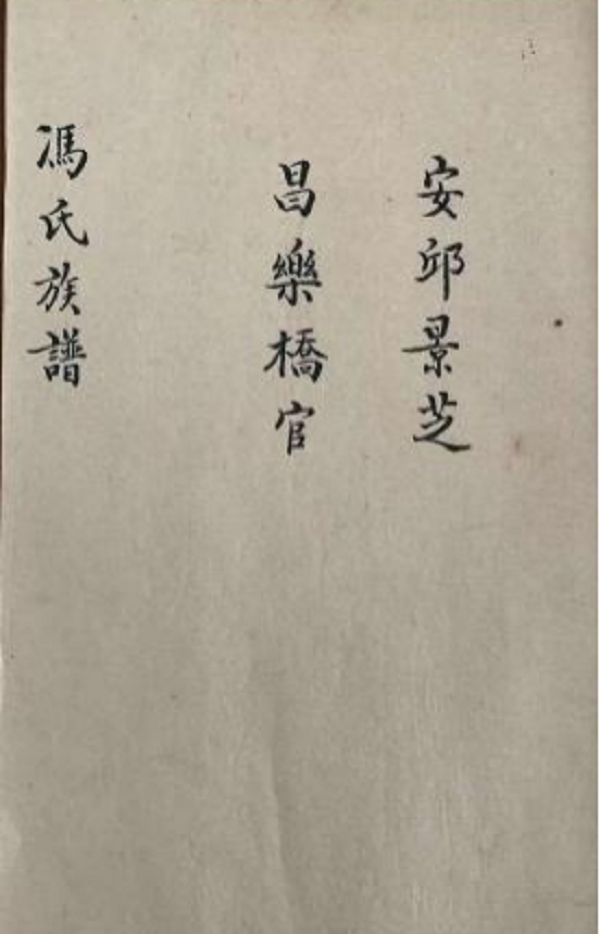 安邱景芝
昌樂橋官
馮氏族譜